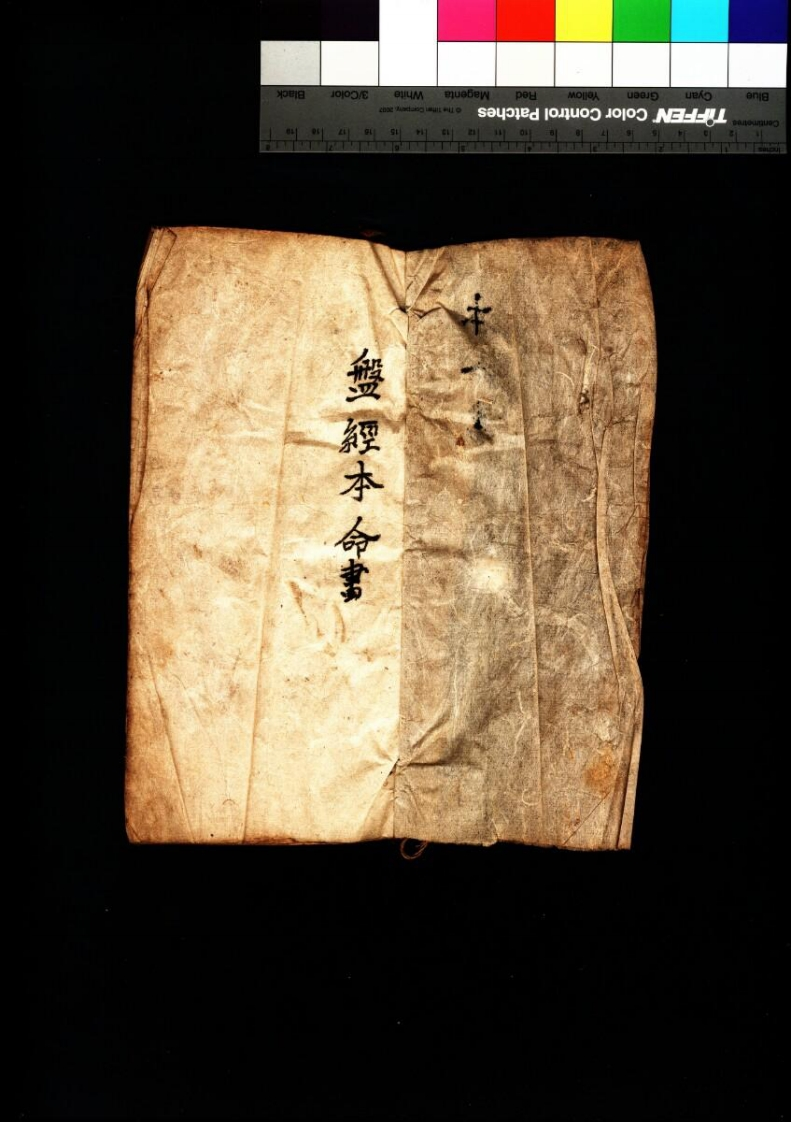 盤經本命書
Blue Cyan Green Yellow Red Magenta White 3/Color Black
TIFFEN Color Control Patches © The Tiffen Company, 2007
Centimetres 1 2 3 4 5 6 7 8 9 10 11 12 13 14 15 16 17 18 19
Inches 1 2 3 4 5 6 7 8